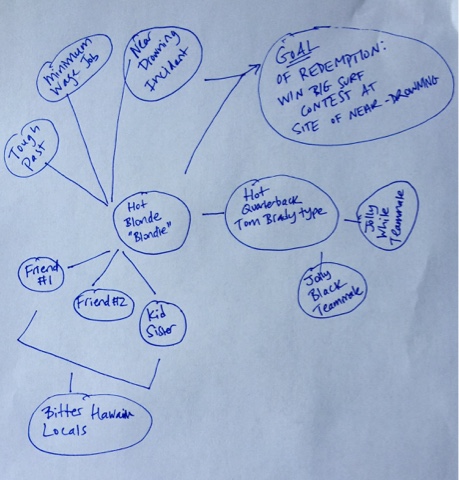 Near
Drowning
Incident
Minimum
Wage Job
Tough
Past
GOAL
OF REDEMPTION:
WIN BIG SURF
CONTEST AT
SITE OF NEAR-DROWNING
Hot
Blonde
"Blondie"
Hot
Quarterback
Tom Brady type
Jolly
White
Teammate
Jolly
Black
Teammate
Friend
#1
Friend #2
Kid
Sister
Bitter Hawaiian
Locals